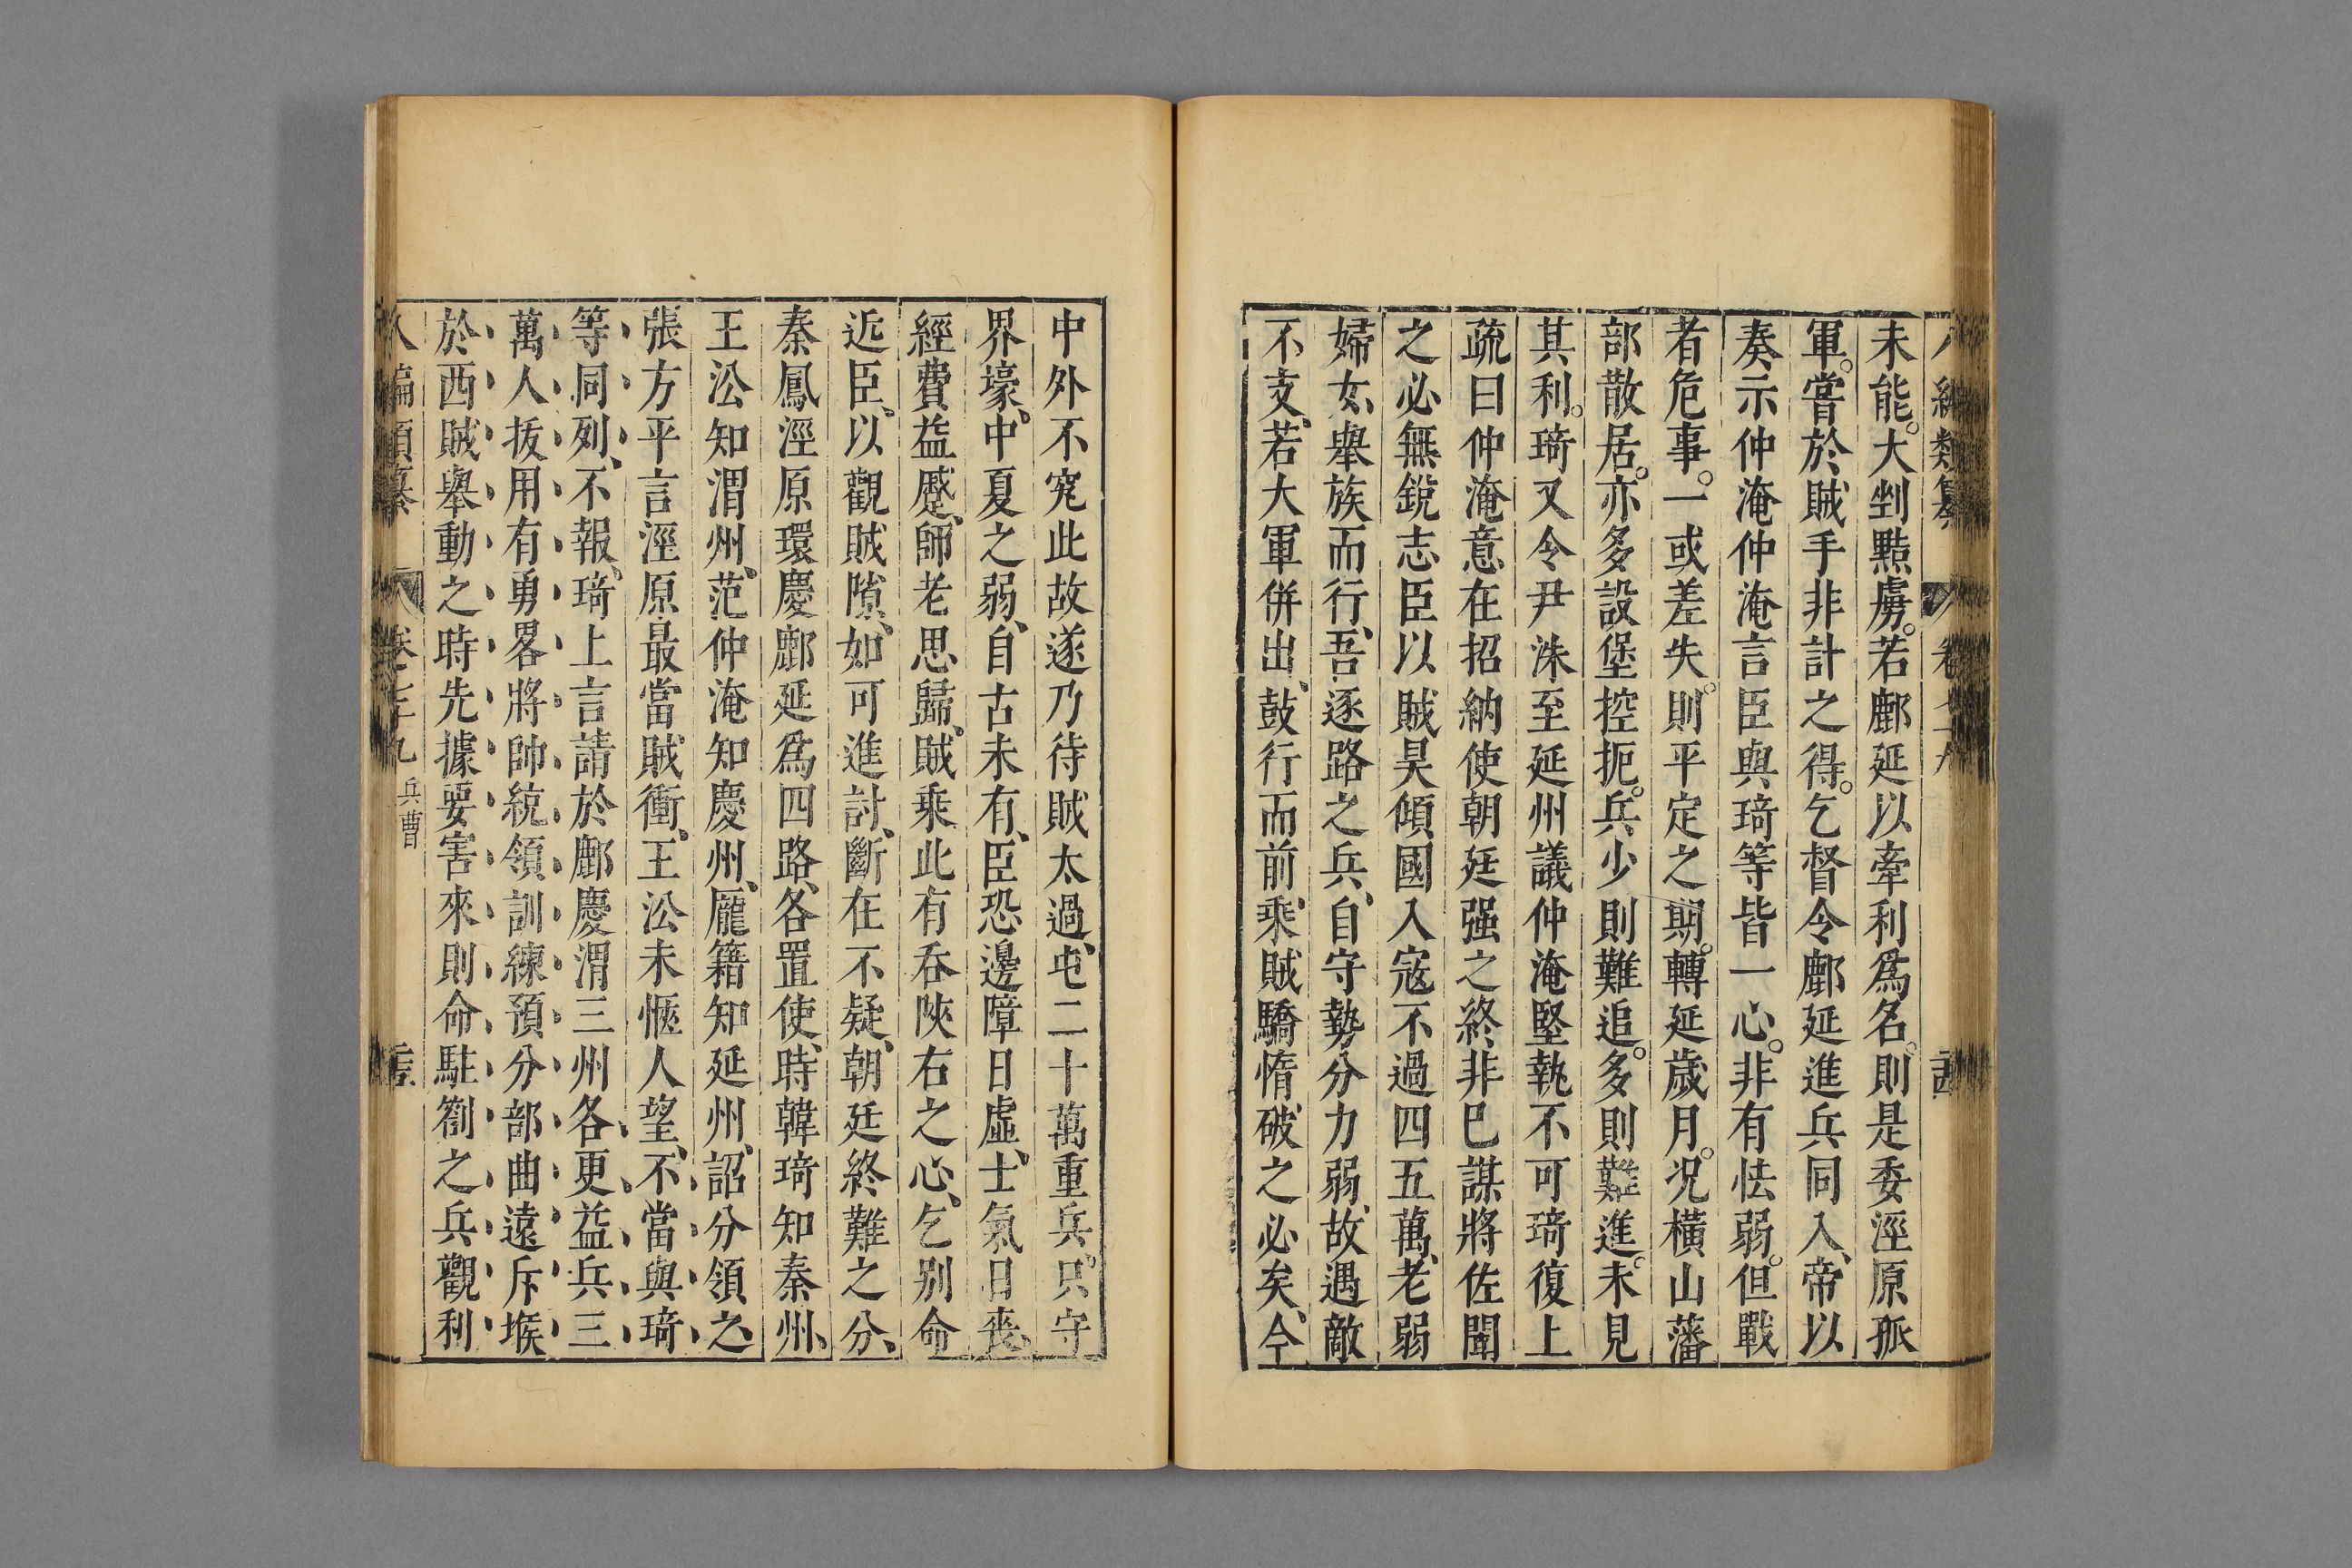 未能。大剉黠虜。若鄜延以牽利爲名。則是委涇原孤
軍。嘗於賊手非計之得。乞督令鄜延進兵同入、帝以
奏示仲淹仲淹言臣與琦等皆一心。非有怯弱。但戰
者危事。一或差失。則平定之期。轉延歲月。況橫山藩
部散居。亦多設堡控扼。兵少則難追。多則難進。未見
其利。琦又令尹洙至延州議仲淹堅執不可琦復上
疏曰仲淹意在招納使朝廷强之終非巳謀將佐聞
之必無銳志臣以賊昊傾國入寇不過四五萬、老弱
婦女、舉族而行、吾逐路之兵、自守勢分力弱、故遇敵
不支、若大軍併出、鼓行而前、乘賊驕惰、破之必矣、今
中外不究此故遂乃待賊太過、屯二十萬重兵。只守
界壕、中夏之弱、自古未有、臣恐邊障日虛、士氣日喪、
經費益蹙、師老思歸、賊乘此有吞陝右之心、乞别命
近臣、以觀賊隙、如可進討、斷在不疑、朝廷終難之分、
秦鳳涇原環慶鄜延爲四路、各置使、時韓琦知秦州、
王㳂知渭州、范仲淹知慶州、龐籍知延州、詔分領之
張方平言涇原最當賊衝、王㳂未愜人望、不當與琦
等同列、不報、琦上言請於鄜慶渭三州各更益兵三
萬人拔用有勇畧將帥統領訓練預分部曲遠斥堠
於西賊舉動之時先據要害來則命駐劄之兵觀利
八編類纂 卷七十九 兵曹